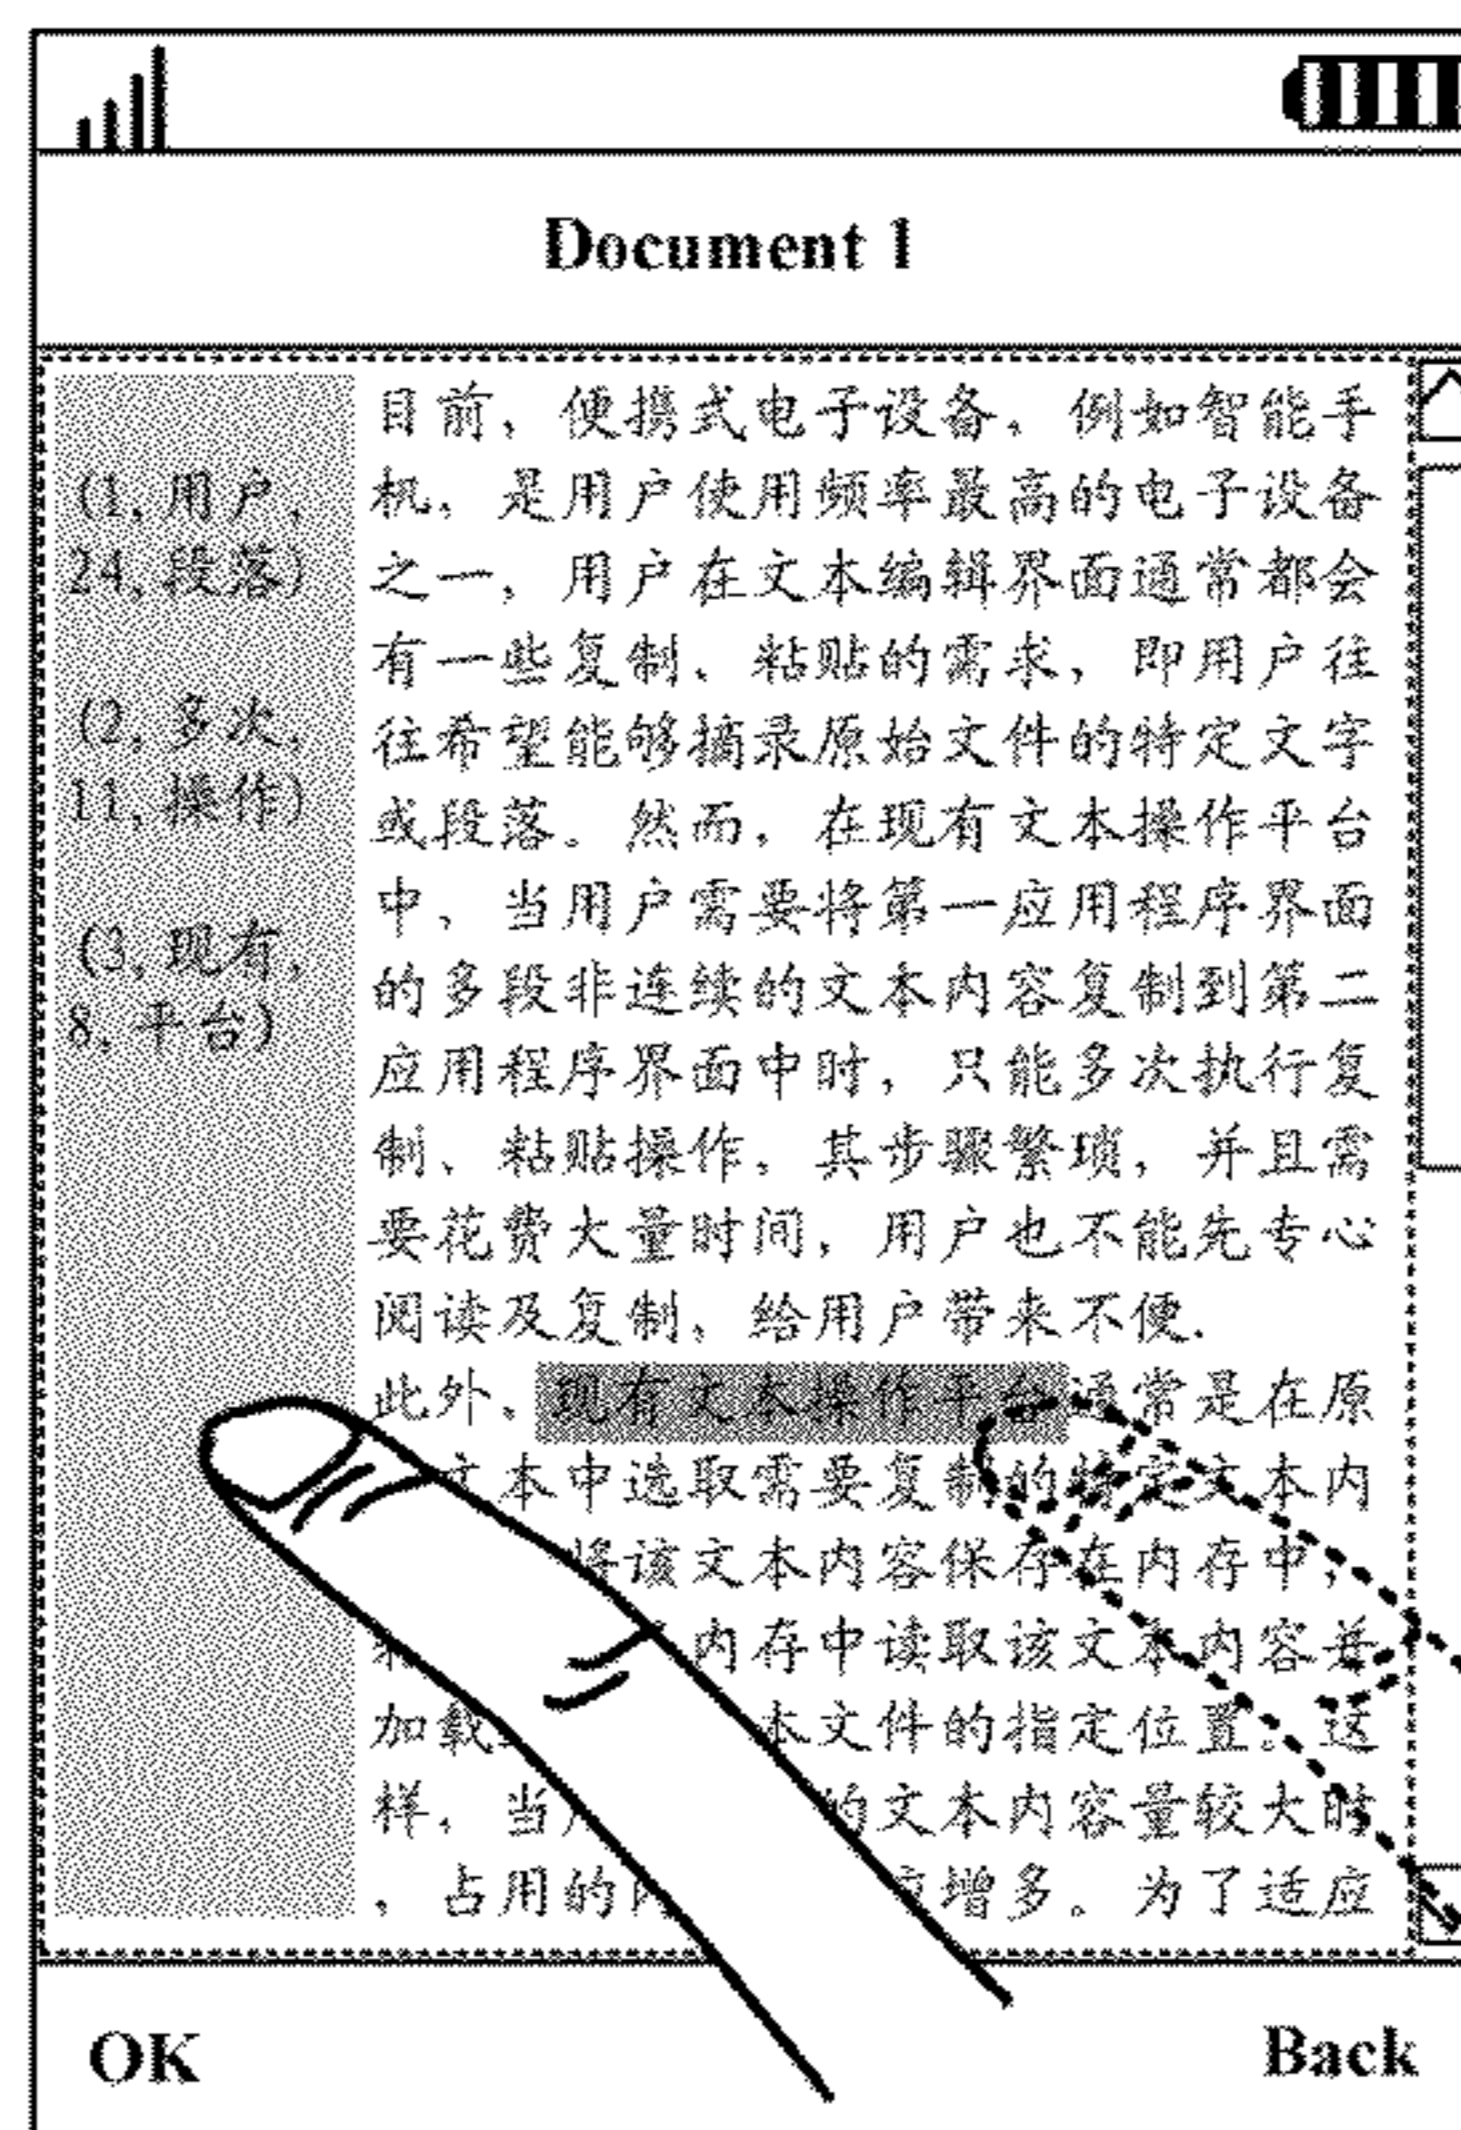 Document 1
(1, 用户,
24, 段落)
(2, 多次,
11, 操作)
(3, 现有,
8, 平台)
目前，便携式电子设备，例如智能手
机，是用户使用频率最高的电子设备
之一，用户在文本编辑界面通常都会
有一些复制、粘贴的需求，即用户往
往希望能够摘录原始文件的特定文字
或段落。然而，在现有文本操作平台
中，当用户需要将第一应用程序界面
的多段非连续的文本内容复制到第二
应用程序界面中时，只能多次执行复
制、粘贴操作，其步骤繁琐，并且需
要花费大量时间，用户也不能先专心
阅读及复制，给用户带来不便.
此外，现有文本操作平台通常是在原
文本中选取需要复制的特定文本内
将该文本内容保存在内存中，
内存中读取该文本内容并
加载 本文件的指定位置。这
样，当 的文本内容量较大时
，占用的内 增多。为了适应
OK
Back